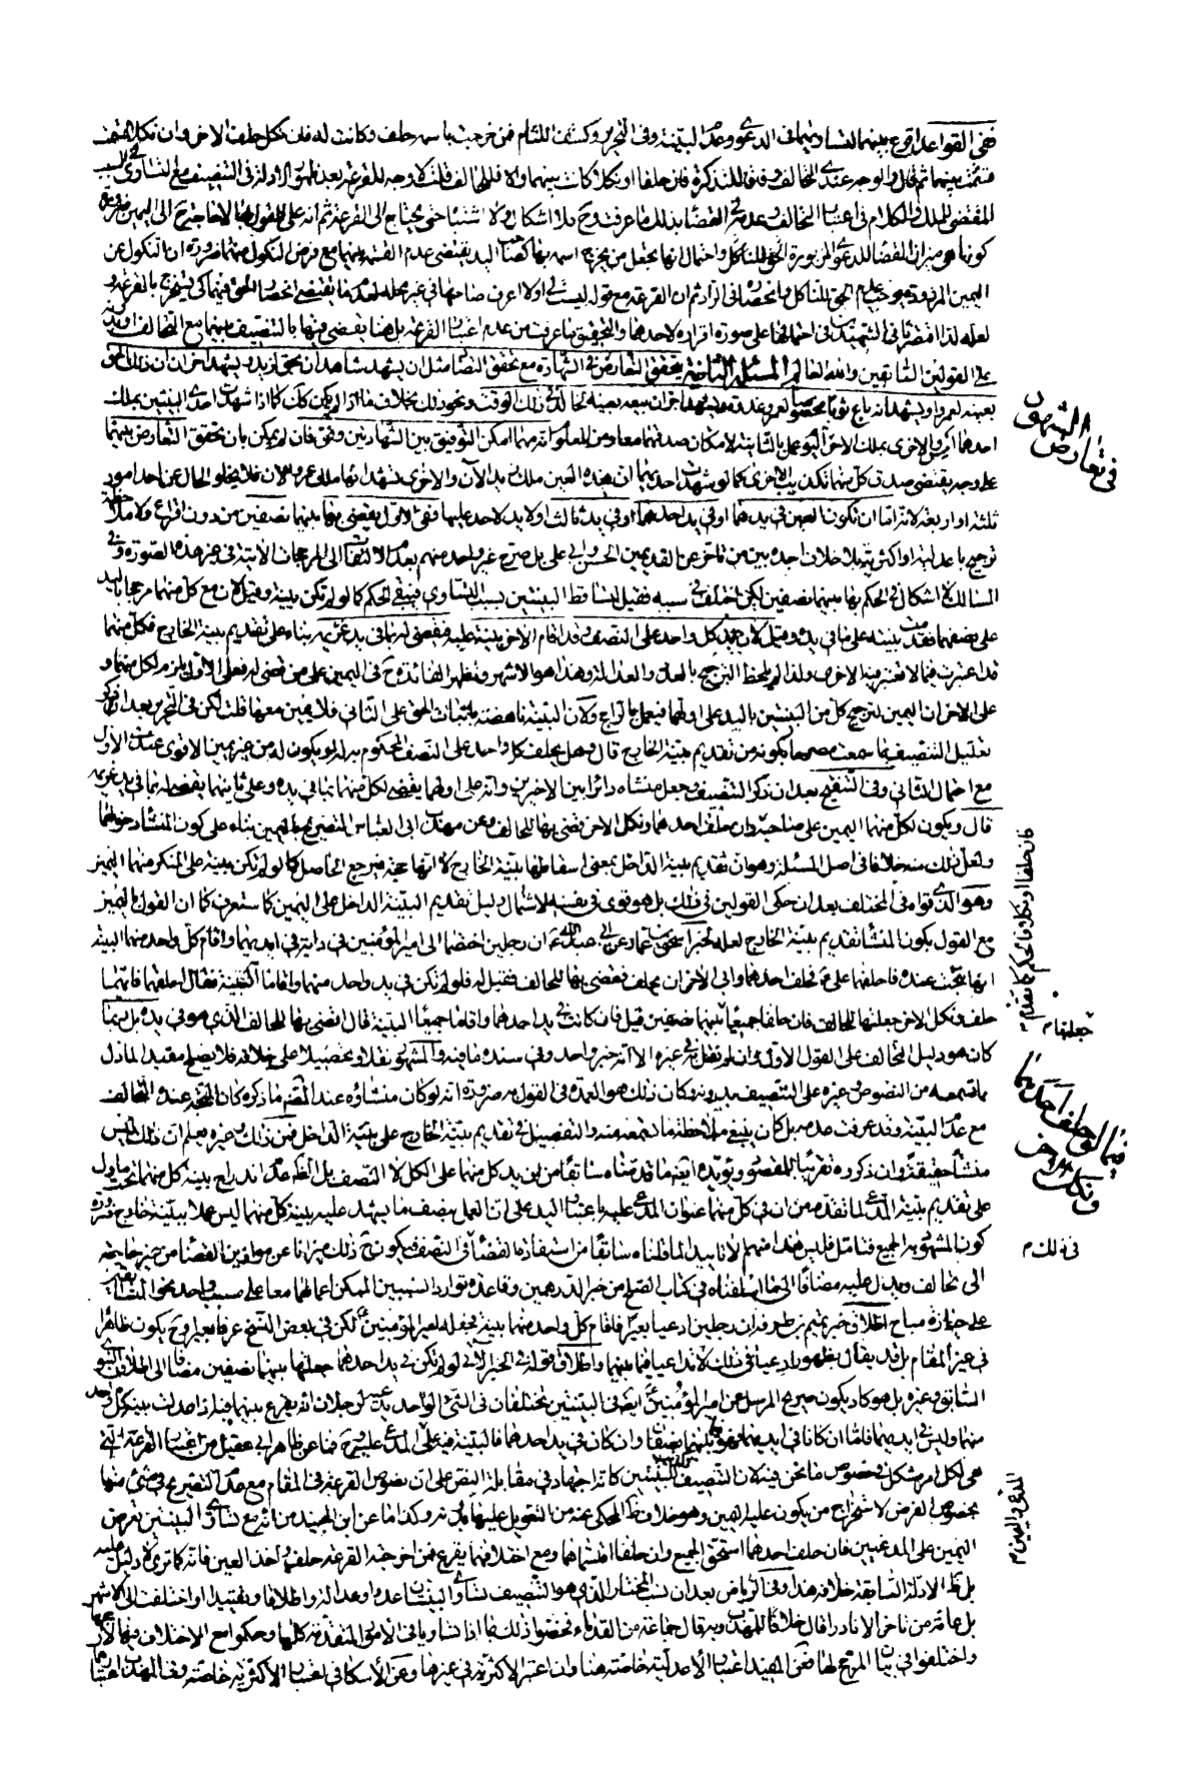 ففى القواعد اقرع بينهما لتساويهما فى الدعوى وعدم البينة وفى التحرير وكشف اللثام فمن خرجت باسمه حلف وكانت له فان نكل حلف الاخر وان نكلا
قسمت بينهما ثم قال والوجه عندى التحالف وفاقا للتذكرة فان حلفا او نكلا كانت بينهما والا فللحالف قلت لا وجه للقرعة بعد ظهور الادلة فى التنصيف مع التساوى فى السبب
المقتضى للملك والكلام فى اعتبار التحالف وعدمه فى القضاء بذلك ما عرفت وح فلا اشكال ولا اشتباه حتى يحتاج الى القرعة ثم انه على القول بها لا حاجة ح الى اليمين
كونها هو ميزان القضاء للدعوى المزبورة
اليمين المردودة يوجب عدم الحق للناكل وانحصاره فى الراد ثم ان القرعة مع قوله ليست لى اولا اعرف صاحبها فى غير محله لعدم ما يقتضى انحصار الحق فيهما كى يستخرج بالقرعة و
لعله لذا اقتصر فى احتمالها على صورة اقراره لاحدهما والتحقيق ما عرفت من عدم اعتبار القرعة بل هنا يقضى فيها بالتنصيف بينهما مع التحالف او بدونه
على القولين السابقين والله العالم المسئلة الثانية يتحقق التعارض فى الشهادة مع تحقق التضاد مثل ان يشهد شاهدان بحق لزيد ويشهد اخران ان ذلك الحق
بعينه لعمرو او يشهدا انه باع ثوبا مخصوصا لعمرو غدوة ويشهد اخران ببيعه بعينه لخالد فى ذلك الوقت ونحو ذلك بخلاف ما اذا لم يكن كك كما اذا شهدت احدى البينتين بملك
احدهما امس والاخرى بملك الاخر اليوم عمل بالثانية لامكان صدقهما معا ومن المعلوم انه مهما امكن التوفيق بين الشهادتين وفق فان لم يمكن بان تحقق التعارض بينهما
على وجه يقتضى صدق كل منهما تكذيب الاخرى كما لو شهدت احديهما ان هذه العين ملك زيد الان والاخرى تشهد انها ملك عمرو الان فلا يخلو الحال عن احد امور
ثلثة او اربعة لانه اما ان تكون العين فى يدهما او فى يد احدهما او فى يد ثالث او لا يد لاحد عليها ففى الاول يقضى بها بينهما نصفين من دون اقراع ولا ملاحظة
ترجيح باعدلية او اكثرية بلا خلاف اجده بين من تاخر عن القديمين الحسن وابى على بل صرح غير واحد منهم بعدم الالتفات الى المرجحات الاتية فى غير هذه الصورة وفى
المسالك لا اشكال فى الحكم بها بينهما نصفين لكن اختلف فى سببه فقيل لتساقط البينتين بسبب التساوى فيبقى الحكم كما لو لم تكن بينة وقيل لان مع كل منهما مرجحا باليد
على نصفها فقدمت بينته على ما فى يده وقيل لان يد كل واحد على النصف وقد اقام الاخر بينة عليه فيقضى له بما فى يد غريمه بناء على تقديم بينة الخارج فكل منهما
قد اعتبرت فيما لا تعتبر فيه الاخرى ولذا لم يلحظ الترجيح بالعدد والعدالة وهذا هو الاشهر وتظهر الفائدة ح فى اليمين على من قضى له فعلى الاول يلزم لكل منهما و
على الاخران اليمين لترجيح كل من البينتين باليد على اولهما فيعمل بالراجح ولان البينة ناهضة باثبات الحق على الثانى فلا يمين معها قلت لكن فى التحرير بعد ان ذكر
تعليل التنصيف بما سمعت مصرحا بكونه من تقديم بينة الخارج قال وهل يحلف كل واحد على النصف المحكوم به له او يكون له من غير يمين الاقوى عندى الاول
مع احتمال الثانى وفى التنقيح بعد ان ذكر التنصيف وجعل منشاه دائرا بين الاخيرين وانه على اولهما يقضى لكل منهما بما فى يده وعلى ثانيهما يقضى له بما فى يد غريمه
قال ويكون لكل منهما اليمين على صاحبه وان حلف احدهما ونكل الاخر يقضى بها للحالف وعن مهذب ابى العباس التصريح باليمين بناء على كون المنشا دخولهما
ولعل ذلك منه خلافا فى اصل المسئلة وهو ان تقديم بينة الداخل بمعنى اسقاطها بينة الخارج لا انها حجة فيرجع الحاصل كما لو لم تكن بينة على المنكر منهما اليمين
وهو الذى قواه فى المختلف بعد ان حكى القولين فى ذلك بل هو قوى فى نفسه لاشتمال دليل تقديم البينة الداخل على اليمين كما ستعرف كما ان القول باليمين
مع القول بكون المنشا تقديم بينة الخارج لعله لخبر اسحق بن عمار عن ابى عبد الله ع ان رجلين اختصما الى امير المؤمنين فى دابة فى ايديهما واقام كل واحد منهما البينة
انها نتجت عنده فاحلفهما على ع فحلف احدهما وابى الاخر ان يحلف فقضى بها للحالف فقيل له فلو لم تكن فى يد واحد منهما واقاما البينة فقال احلفهما فايهما
حلف ونكل الاخر جعلتها للحالف فان حلفا جميعا جعلتها بينهما نصفين قيل فان كانت فى يد احدهما واقاما جميعا البينة قال اقضى بها للحالف الذى هو فى يده بل ربما
كان هو دليل التحالف على القول الاول وان لم نقل به فى غيره الا انه خبر واحد وفى سنده ما فيه والمشهور نقلا وتحصيلا على خلافه فلا يصلح مقيدا لما دل
مما تسمعه من النصوص وغيره على التنصيف بدونه وكان ذلك هو العمدة فى القول به ضرورة انه لو كان منشاؤه عند المص ما ذكره كان المتجه عنده التحالف
مع عدم البينة وقد عرفت عدمه بل كان ينبغى ملاحظة ما تسمعه منه والتفصيل فى تقديم بينة الخارج على بينة الداخل فمن ذلك وغيره يعلم ان ذلك ليس
منشأ حقيقة وان ذكروه تقريبا للمقصود ويؤيده ايضا ما قدمناه سابقا من ان يد كل منهما على الكل لا النصف بل الظاهر عدم اندراج بينة كل منهما تحت ما دل
على تقديم بينة المدعى لما تقدم من ان فى كل منهما عنوان المدعى عليه باعتبار اليد على ان العمل بنصف ما يشهد عليه بينة كل منهما ليس عملا ببينة خارج ضرورة
كون المشهود به الجميع فتامل فليس هذا منهم الا تاييدا لما قلناه سابقا من استفادة القضاء فى النصف فيكون ح ذلك ميزانا عن موازين القضاء من غير حاجة
الى تحالف ويدل عليه مضافا الى ما اسلفناه فى كتاب الصلح من خبر الدرهمين وقاعدة توارد السببين الممكن اعمالهما معا على مسبب واحد نحو التسابق
على حيازة مباح اطلاق خبر تميم بن طرفة ان رجلين ادعيا بعيرا فاقام كل واحد منهما بينة فجعله امير المؤمنين بينهما لكن فى بعض النسخ عرفا بعيرا وح يكون ظاهرا
فى غير المقام بل قد يقال بظهور ادعيا فى ذلك لا تداعيا فيما بينهما واطلاق قوله فى الخبر الاتى لو لم تكن فى يد احدهما جعلتها بينهما نصفين مضافا الى اطلاق النبوى
السابق وغيره بل هو كاد يكون صريح المرسل عن امير المؤمنين ايضا فى البينتين تختلفان فى الشئ الواحد يدعيه رجلان انه يقرع بينهما فيه اذا عدلت بينة كل واحد
منهما وليس فى ايديهما فاما ان كانا فى ايديهما فهو فيما بينهما نصفان وان كان فى يد احدهما فالبينة فيه على المدعى عليه فما عن ظاهر ابى عقيل من اعتبار القرعة التى
هى لكل امر مشكل فى خصوص ما نحن فيه لان التنصيف تكذيب للبينتين كانه اجتهاد فى مقابلة النص على ان نصوص القرعة فى المقام مع عدم التصريح فى شئ منها
بخصوص الفرض لاستخراج من يكون عليه اليمين وهو خلاف ظاهر المحكى عنه من التعويل عليها بدونه وكذا ما عن ابن الجنيد من انه مع تساوى البينتين تعرض
اليمين على المدعيين فان حلف احدهما استحق الجميع وان حلفا اقتسماها ومع اختلافهما يقرع فمن اخرجته القرعة حلف واخذ العين فانه كما ترى لا دليل عليه
بل ظاهر الادلة السابقة خلافه هذا وفى الرياض بعد ان نسب المختار الذى هو التنصيف تساوت البينتان عددا وعدالة واطلاقا وتقييدا او اختلفت الى الاشهر
بل عامة من تاخر الا نادرا قال خلافا للمهذب وبه قال جماعة من القدماء فخصوا ذلك بما اذا تساويا فى الامور المتقدمة كلها وحكموا مع الاختلاف فيها لارجحها
واختلفوا فى بيان المرجح لها فعن المفيد اعتبار الاعدلية خاصة هنا وان اعتبر الاكثرية فى غيرها وعن الاسكافى اعتبار الاكثرية خاصة وفى المهذب اعتبارهما
فى تعارض الشهود
فان حلفا او نكلا فالحكم كما تقدم م
جعلتها م
فيما لو حلف احدهما ونكل الاخر
فى ذلك م
المدعى واليمين م